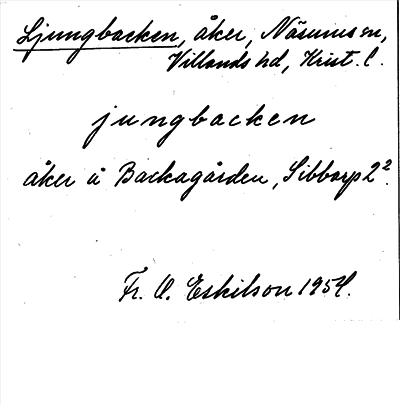 Ljungbacken, åker, Näsums sn,
Villands hd, Krist. l.
jungbacken
åker å Backagården, Sibborp 2².
Fr. O. Eskilson 1954.